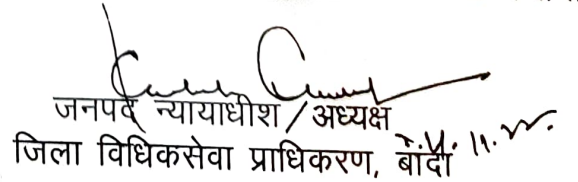 जनपद न्यायाधीश / अध्यक्ष
जिला विधिकसेवा प्राधिकरण, बाँदा